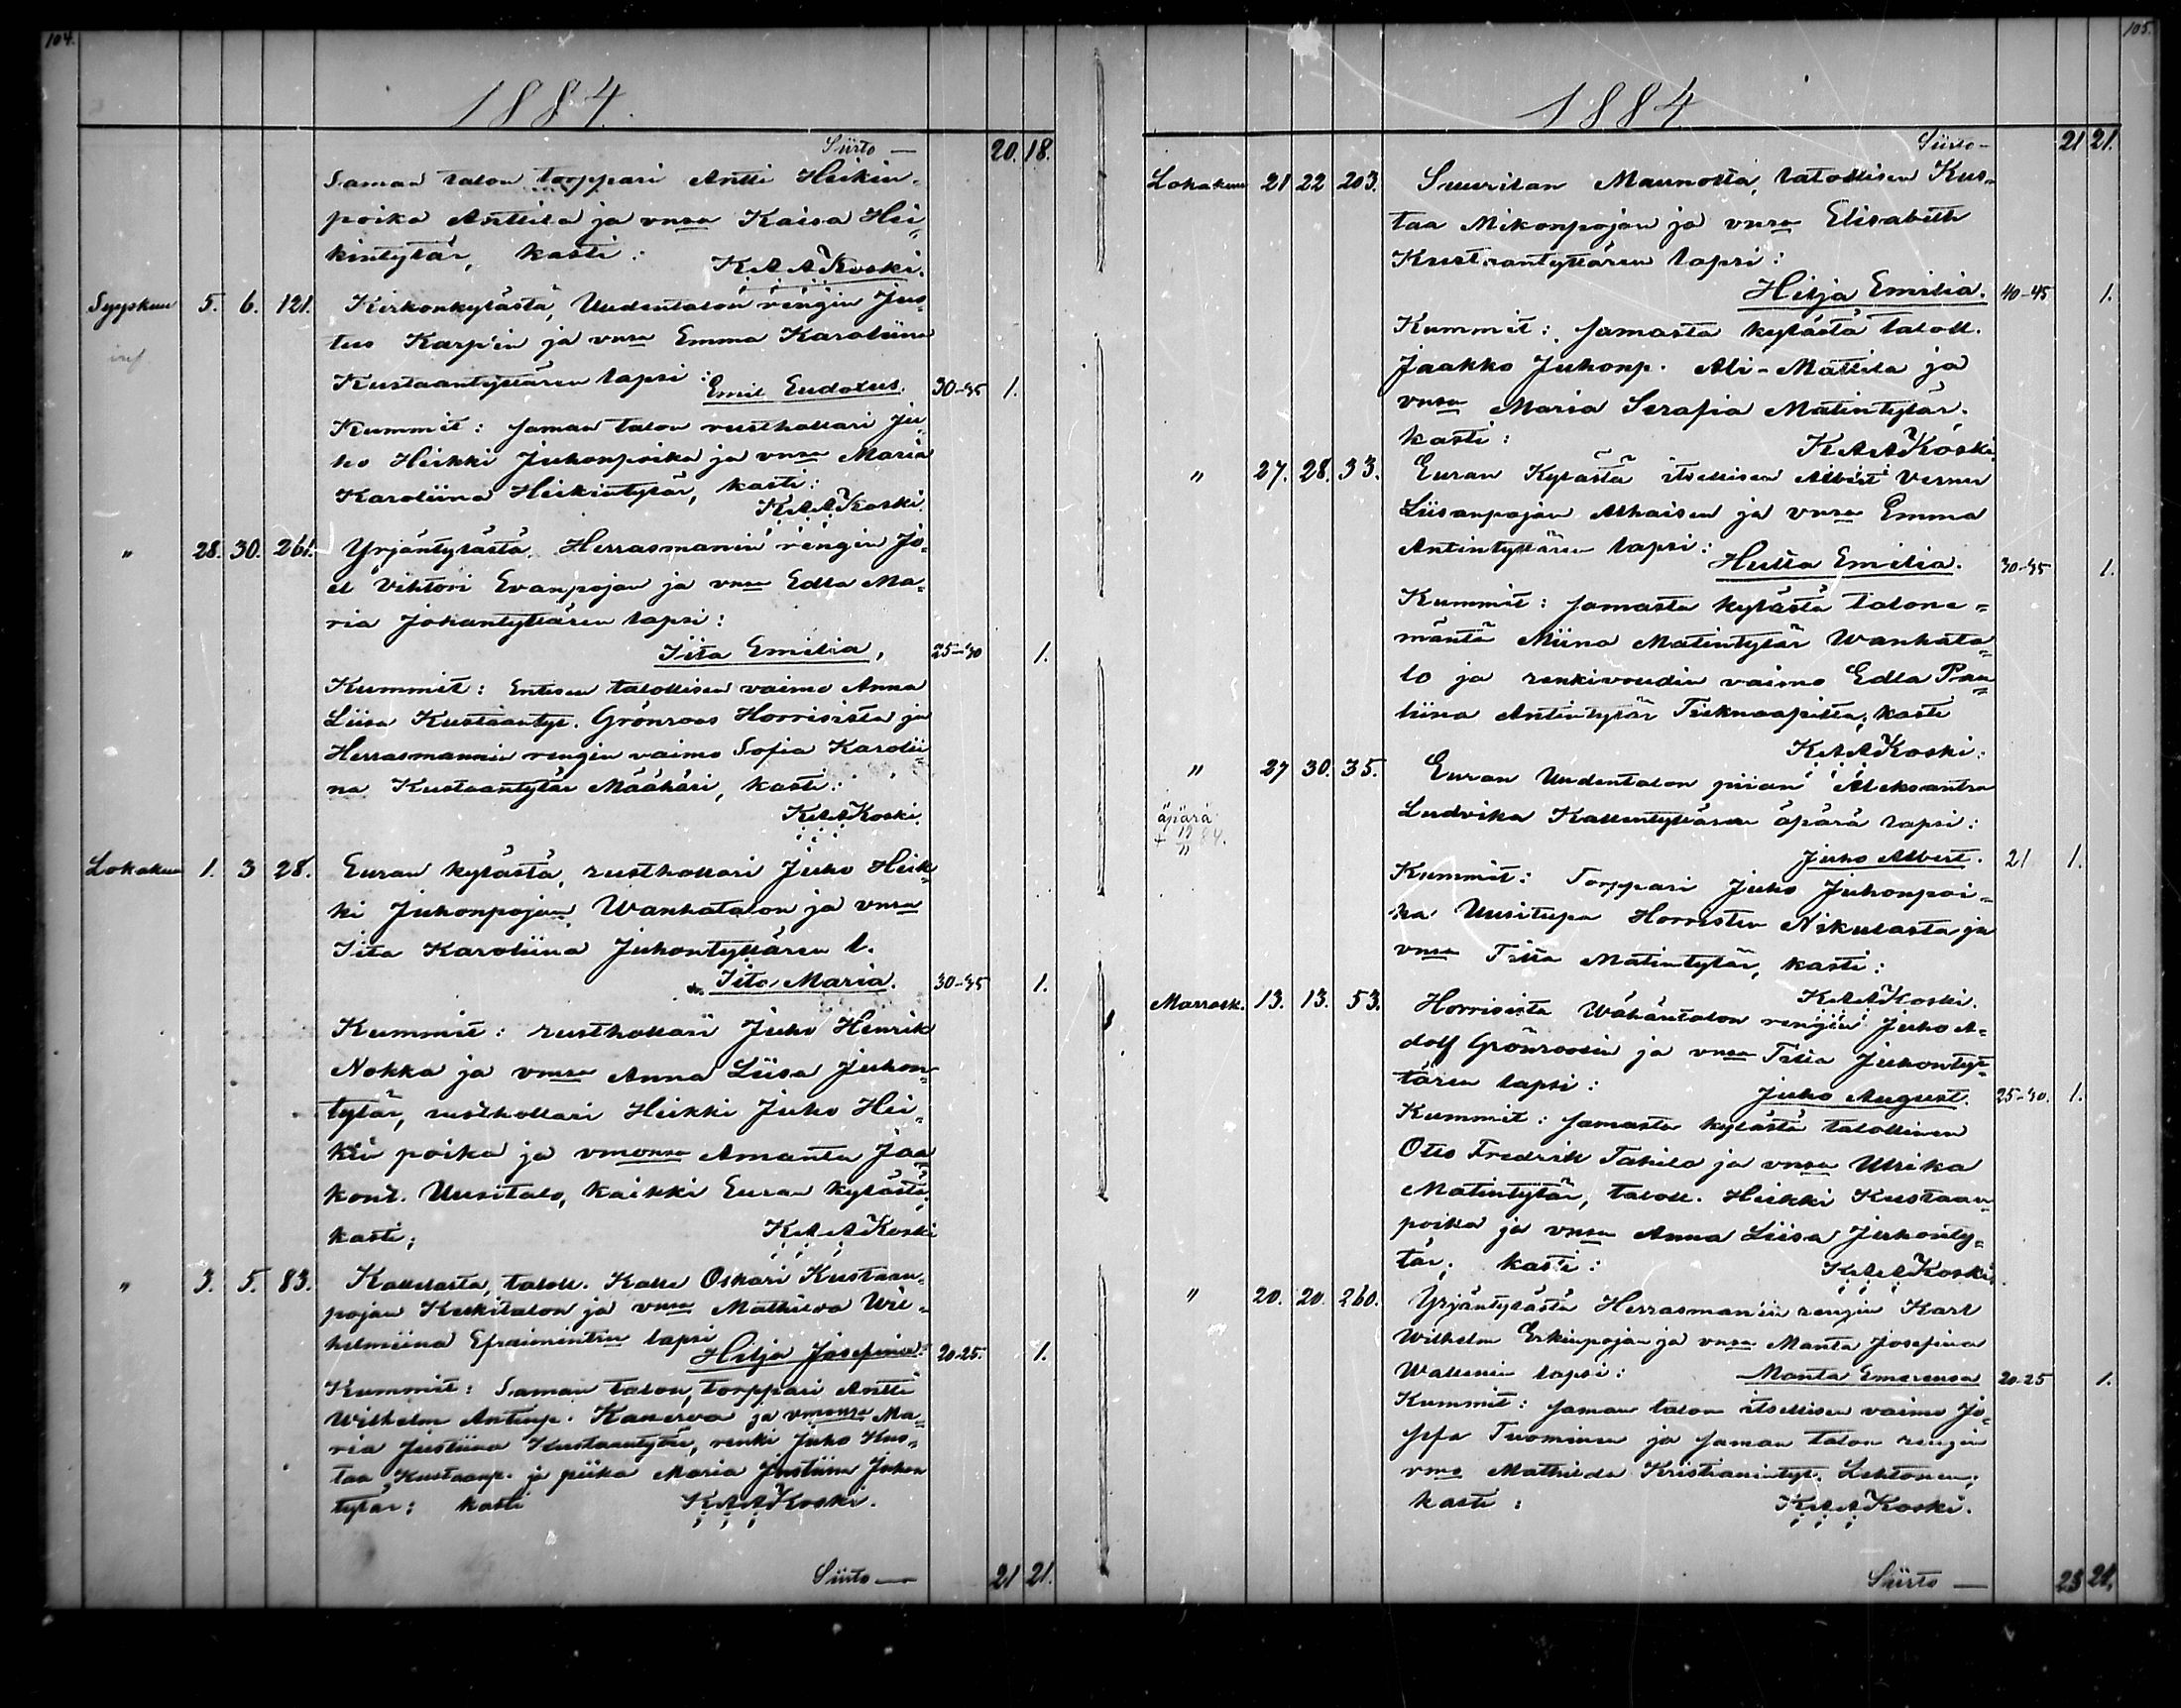 104.
1884.
Siirto — 20. 18.
Saman talon torppari Antti Heikin-
poika Anttila ja vnsa Kaisa Hei-
kintytär, kasti: K. A. A. Koski.
Syyskuu 5. 6. 121. Kirkonkylästä, Uudentalon rengin Jus-
tus Karp'in ja vnsa Emma Karoliina
Kustaantyttären lapsi: Emil Eudoxus. 30-35 1.
Kummit: saman talon rusthollari Ju-
ho Heikki Juhonpoika ja vnsa Maria
Karoliina Heikintytär, kasti:
K. A. A. Koski.
" 28. 30. 261. Yrjänkylästä, Herrasmanin rengin Jo-
el Viktori Evanpojan ja vnsa Edla Ma-
ria Johantyttären lapsi:
Iita Emilia, 25-30 1.
Kummit: Entisen talollisen vaimo Anna
Liisa Kustaantyt. Grönroos Horrisista ja
Herrasmannin rengin vaimo Sofia Karolii-
na Kustaantytär Määhäri, kasti:
K. A. A. Koski.
Lokakuu 1. 3 28. Euran kylästä, rusthollari Juho Heik-
ki Juhonpojan Wanhatalon ja vnsa
Iita Karoliina Juhontyttären l.
Iita Maria. 30-35 1.
Kummit: rusthollari Juho Henrik
Nokka ja vmsa Anna Liisa Juhon-
tytär, rusthollari Heikki Juho Hei-
kin poika ja vmonsa Amanta Jaa-
kont. Uusitalo, kaikki Euran kylästä,
kasti; K. A. A. Koski
" 3. 5. 83. Kauttasta, taloll. Kalle Oskari Kustaan-
pojan Keskitalon ja vnsa Mathilda Wil-
helmiina Efraimintren lapsi
Hilja Josefina. 20-25. 1.
Kummit: Saman talon, torppari Antti
Wilhelm Antinp. Kanerva ja vmonsa Ma-
ria Justiina Kustaantytär, renki Juho Kus-
taa Kustaanp. ja piika Maria Justiina Juhon
tytär; kasti K. A. A. Koski.
Siirto — 21 21.
105.
1884
Siirto - 21 21.
Lokakuu 21 22 203. Suurilan Maunolta, talollisen Kus-
taa Mikonpojan ja vnsa Elisabeth
Kustaantyttären lapsi:
Hilja Emilia. 40-45 1.
Kummit: samasta kylästä taloll.
Jaakko Juhonp. Ali-Mattila ja
vnsa Maria Serafia Matintytär.
kasti: K. A. A. Koski.
" 27. 28. 33. Euran Kylästä itsellisen Albert Verner
Liisanpojan Alhaisen ja vnsa Emma
Antintyttären lapsi:
Hulta Emilia. 30-35 1.
Kummit: samasta kylästä talone-
mäntä Miina Matintytär Wanhata-
lo ja renkivoudin vaimo Edla Pau-
liina Antintytär kasti
K. A. A. Koski.
" 27 30. 35. Euran Uudentalon piian Aleksantra
Ludvika Kallentyttären äpärä lapsi:
äpärä
Juho Albert. 21 1.
Kummit: Torppari Juho Juhonpoi-
ka Uusitupa Horristen Nikulasta ja
vnsa Tilta Matintytär, kasti:
K. A. A. Koski.
Marrask. 13. 13. 53. Horrisista Wähäntalon rengin Juho A-
dolf Grönroosin ja vnsa Tilia Juhontyt-
tären lapsi: Juho August. 25-30. 1.
Kummit: samasta kylästä talollinen
Otto Fredrik Tahila ja vnsa Ulrika
Matintytär, taloll. Heikki Kustaan-
poika ja vnsa Anna Liisa Juhonty-
tär, kasti: K. A. A. Koski.
" 20. 20. 260. Yrjänkylästä Herrasmanin rengin Karl
Wilhelm Erkinpojan ja vnsa Manta Josefina
Wallenin lapsi: Manta Emerensa 20-25 1.
Kummit: saman talon itsellisen vaimo Jo-
sefa Tuominen ja saman talon rengin
vmo Mathilda Kristianintyt. Lehtonen,
kasti: K. A. A. Koski.
Siirto — 23 24.